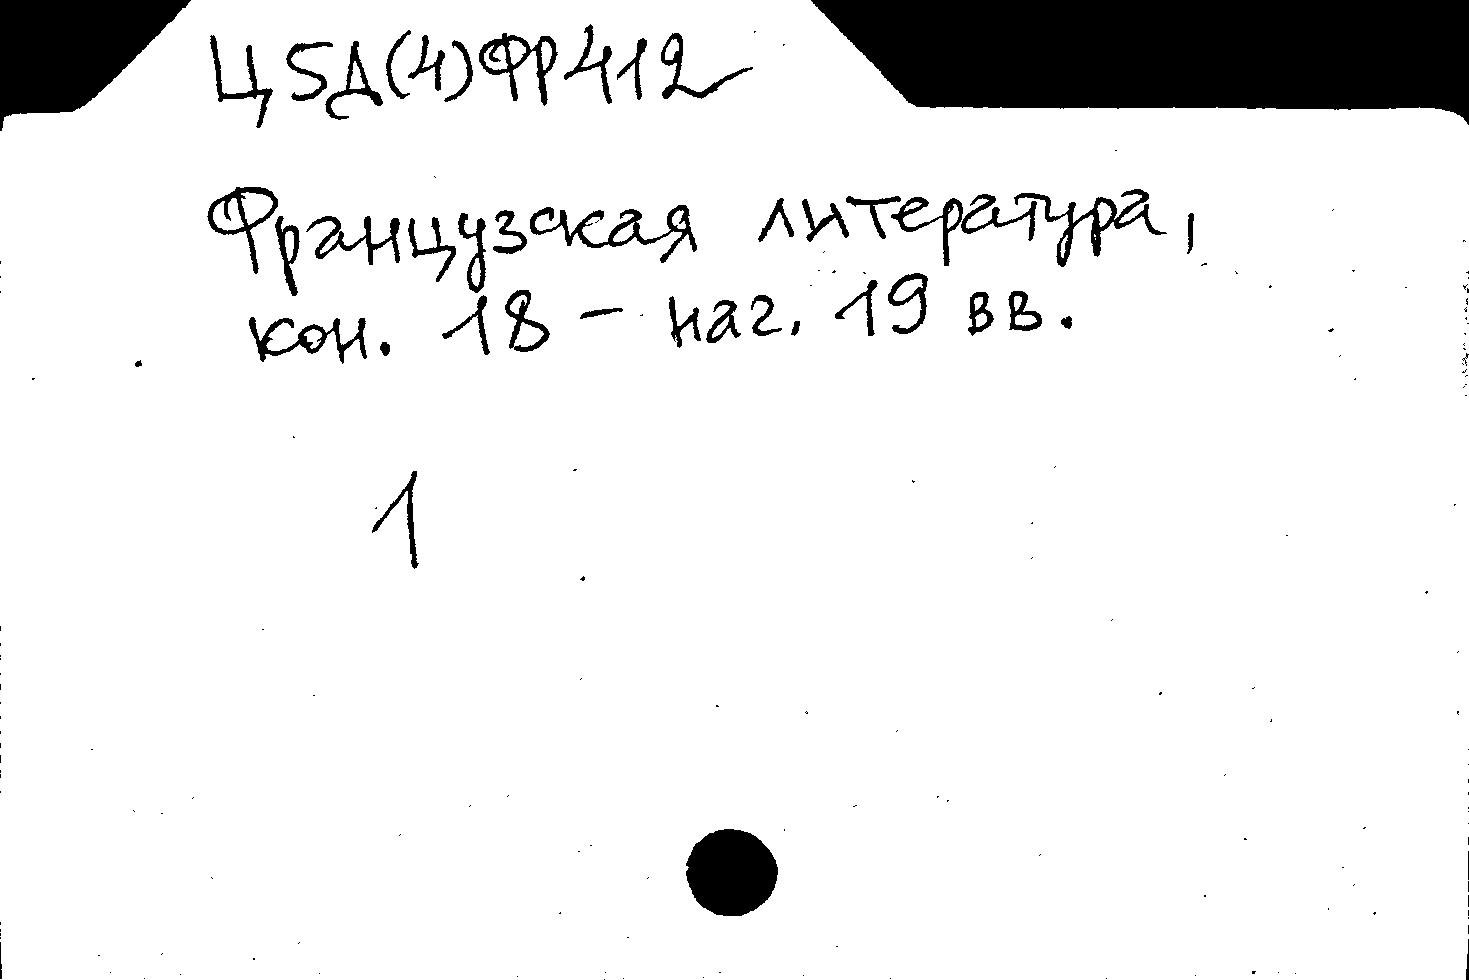 Ц5Д(4)ФР412
Французская литература,
кон. 18 - нач. 19 вв.
1